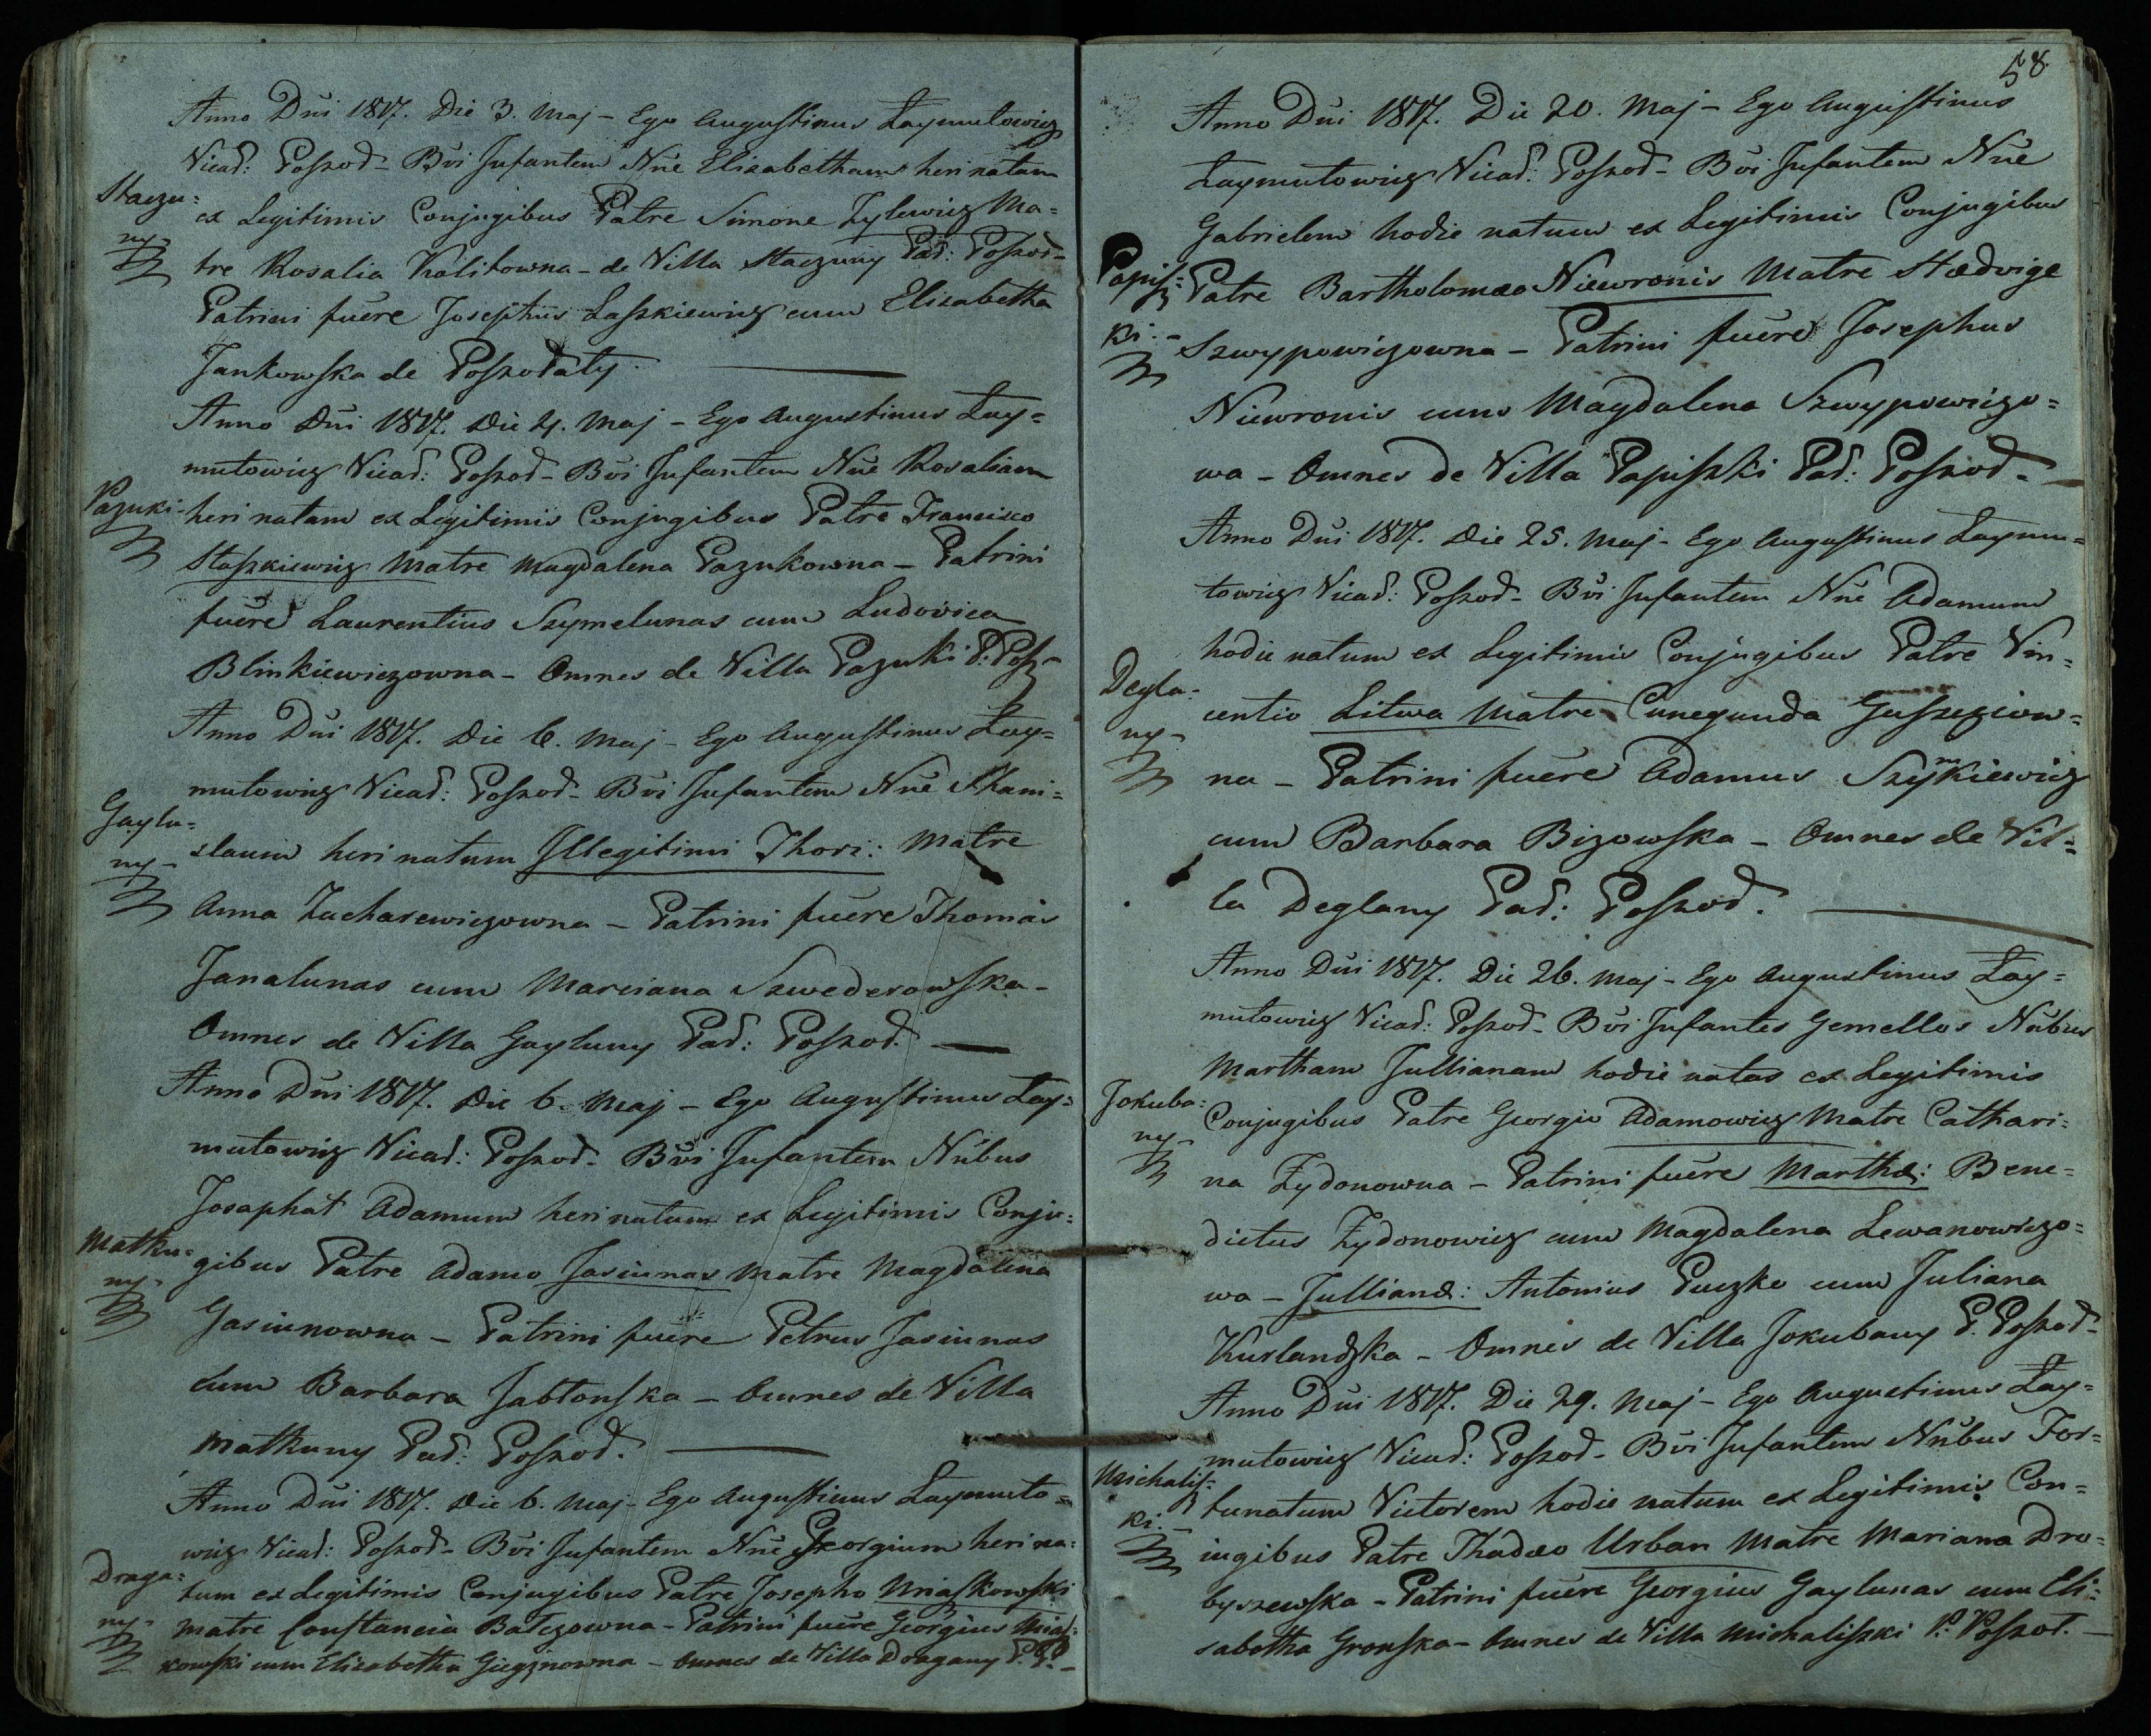 Anno Dni 1817. Die 3. Maj – Ego Augustinus Łaymutowicz
Vicad: Poszod – Bvi Infantem Nne Elisabetham heri natam
Staczu=
ny –
ex Legitimis Conjugibus Patre Simone Zylewicz Ma=
tre Rosalia Kalitowna – de Villa Staczuny Pad: Poszod –
Patrini fuere Josephus Laszkiewicz cum Elisabetha
Jankowska de Poszołaty.
Anno Dni 1817. Die 4. Maj – Ego Augustinus Łay=
mutowicz Vicad: Poszod – Bvi Infantem Nne Rosaliam
Pazuki –
heri natam ex Legitimis Conjugibus Patre Francisco
Staszkiewicz Matre Magdalena Pazukowna – Patrini
fuere Laurentius Szymelunas cum Ludovica
Blinkiewiczowna – Omnes de Villa Pazuki P: Posz –
Anno Dni 1817. Die 6. Maj – Ego Augustinus Łay=
mutowicz Vicad: Poszod – Bvi Infantem Nne Stani=
Gaylu=
ny –
slaum heri natum Illegitimi Thori: Matre
Anna Zacharewiczowna – Patrini fuere Thomas
Janalunas cum Marciana Szwederowska –
Omnes de Villa Gayluny Pad: Poszod.
Anno Dni 1817. Die 6. Maj – Ego Augustinus Łay=
mutowicz Vicad: Poszod – Bvi Infantem Nnbus
Josaphat Adamum heri natum ex Legitimis Conju=
Matku=
ny –
gibus Patre Adamo Jasiunas Matre Magdalena
Gasiunowna – Patrini fuere Petrus Jasiunas
cum Barbara Jabłonska – Omnes de Villa
Matkuny Pad: Poszod.
Anno Dni 1817. Die 6. Maj – Ego Augustinus Łaymuto=
wicz Vicad: Poszod – Bvi Infantem Nne Georgium heri na=
Draga=
ny –
tum ex Legitimis Conjugibus Patre Josepho Miaskowski
Matre Constancia Balczowna – Patrini fuere Georgius Mias=
kowski cum Elisabetha – Omnes de Villa Dragany P. P. –
58
Anno Dni 1817. Die 20. Maj – Ego Augustinus
Łaymutowicz Vicad: Poszod – Bvi Infantem Nne
Gabrielem hodie natum ex Legitimis Conjugibus
Papisz=
ki. –
Patre Bartholomæo Niewronis Matre Hædvige
Szwypowiczowna – Patrini fuere Josephus
Niewronis cum Magdalena Szwypowiczo=
wa – Omnes de Villa Papiszki Pad: Poszod –
Anno Dni 1817. Die 25. Maj – Ego Augustinus Łaymu=
towicz Vicad: Poszod – Bvi Infantem Nne Adamum
hodie natum ex Legitimis Conjugibus Patre Vin=
Degla=
ny –
centio Litwa Matre Cunegunda Guszczion=
na – Patrini fuere Adamus Szymkiewicz
cum Barbara Bizowska – Omnes de Vil=
la Deglany Pad: Poszod.
Anno Dni 1817. Die 26. Maj – Ego Augustinus Łay=
mutowicz Vicad: Poszod – Bvi Infantes Gemellos Nnbus
Martham Jullianam hodie natas ex Legitimis
Jokuba=
ny –
Conjugibus Patre Georgio Adamowicz Matre Cathari=
na Żydonowna – Patrini fuere Marthæ: Bene=
dictus Żydonowicz cum Magdalena Lewanowiczo=
wa – Jullianæ: Antonius Puczko cum Juliana
Kurlandzka – Omnes de Villa Jokubany P. Poszod –
Anno Dni 1817. Die 29. Maj – Ego Augustinus Łay=
mutowicz Vicad: Poszod – Bvi Infantem Nnbus For=
Michalisz=
ki. –
tunatum Victorem hodie natum ex Legitimis Con=
iugibus Patre Thadæo Urban Matre Mariana Dro=
byszewska – Patrini fuere Georgius Gaylunas cum Eli=
sabetha Gronska – Omnes de Villa Michaliszki P. Poszod. –